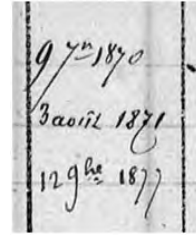 9 7bre 1870
3 août 1871
12 9bre 1877